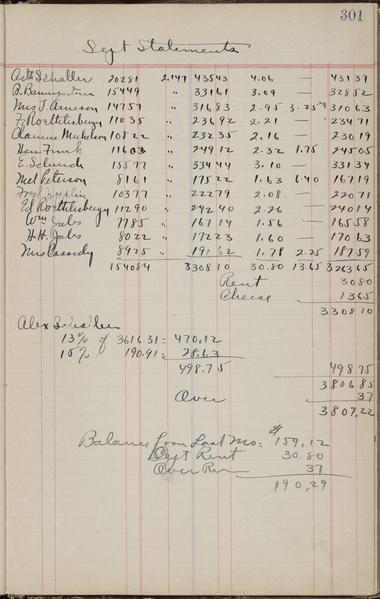 301
Sept Statements
Art Schaller 20281 2.147 43543 4.06 — 43137
B. Baumgarten 15449 " 33161 3.09 — 32852
Mrs J. Arneson 14757 " 31683 2.95 3.25 31063
F. Roettelsbergy 11035 " 23692 2.21 — 23471
Clarence Mickelson 10822 " 23235 2.16 — 23019
Hen Funk 11603 " 24912 2.32 1.75 24505
E. Schmidt 15577 " 33444 3.10 — 33134
Mel Peterson 8161 " 17522 1.63 6.40 16719
Fred 10377 " 22279 2.08 — 22071
Ed Roettelsbergy 11290 " 24240 2.26 — 24014
Wm Jabs 7785 " 16714 1.56 — 16558
H.H. Jabs 8022 " 17223 1.60 — 17063
Mrs Cassidy 8925 " 19162 1.78 2.25 18759
154084 330810 30.80 13.65 326365
Rent 3080
Cheese 1365
330810
Alex Schaller
13% of 3616.31 = 470.12
15% 190.91 = 28.63
498.75 49875
380685
Over 37
3807.22
Balance from Last Mo: $159.12
Sept Rent 30.80
Over Run 37
190.29